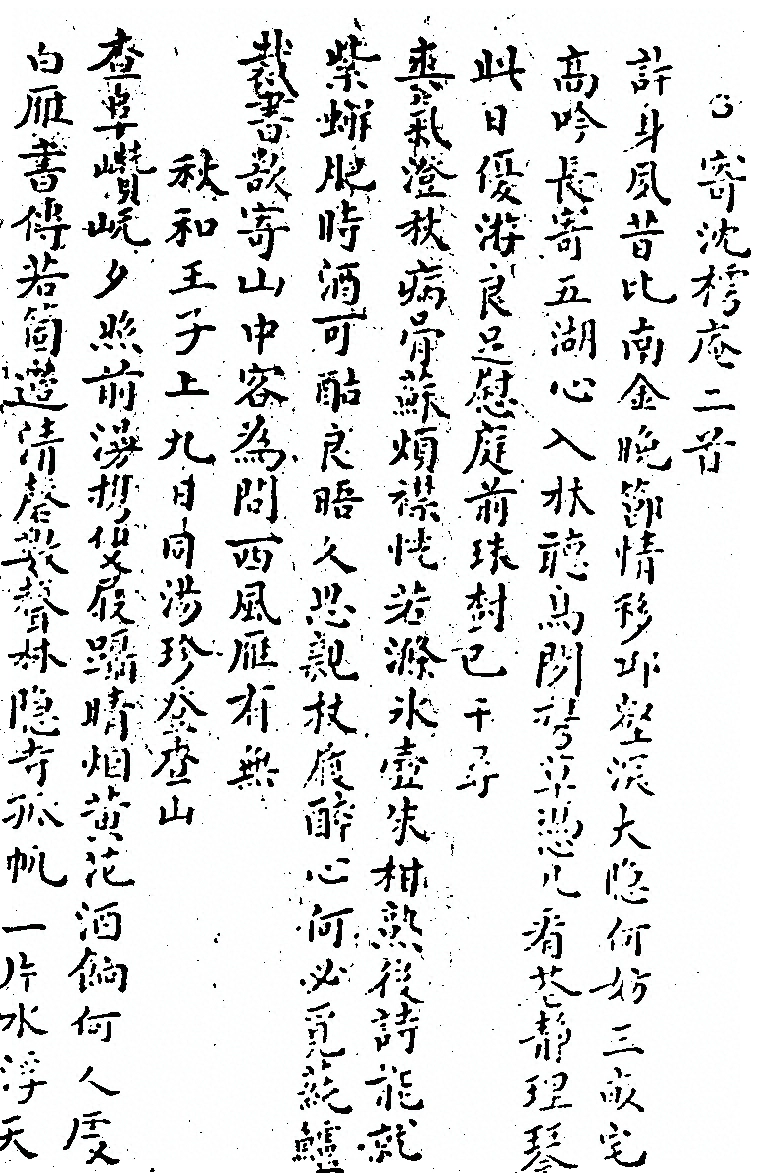 寄沈樗庵二首
許身夙昔比南金晚節情移邱壑深大隱何妨三畝宅
高吟長寄五湖心入林聽鳥閒携草憑几看花靜理琴
此日優游良足慰庭前珠樹已千尋
爽氣澄秋病骨蘇煩襟恍若滌氷壺朱柑熟後詩能就
紫蠏肥時酒可酤良晤久思親杖履醉心何必覓蒓鱸
裁書欲寄山中客為問西風雁有無
秋和王子上九日同湯珍登查山
查阜巑岏夕照前漫携雙屐躡晴烟黃花酒餉何人處
白雁書傳若箇邊清磬數聲林隱寺孤帆一片水浮天